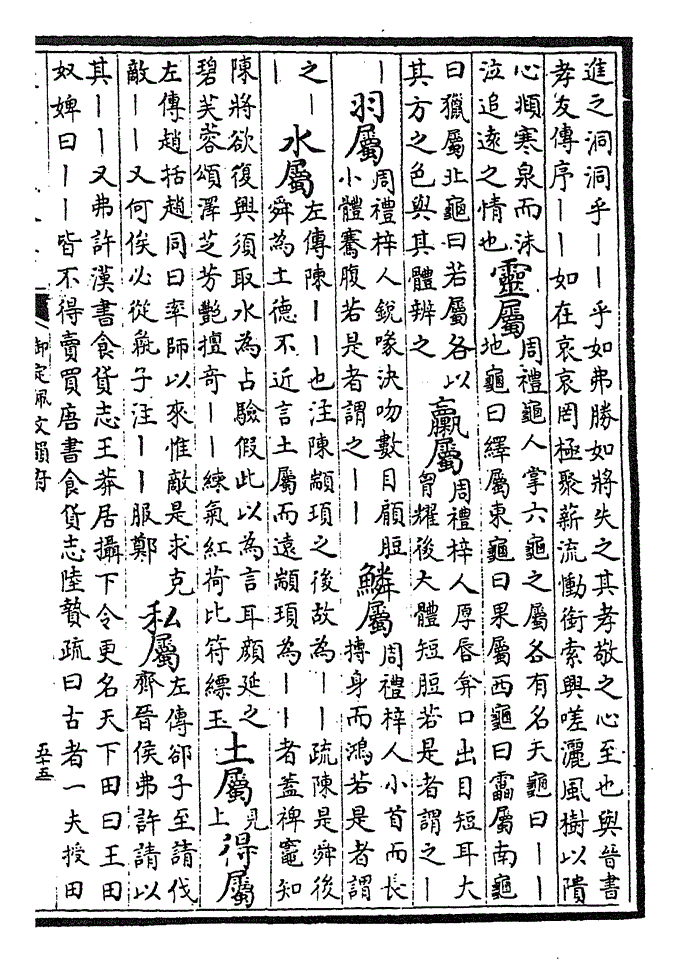 進之洞洞乎〡〡乎如弗勝如將失之其孝敬之心至也與晉書
孝友傳序〡〡如在哀哀罔極聚薪流慟銜索興嗟灑風樹以隤
心頫寒泉而沬
泣追遠之情也
靈屬
周禮龜人掌六龜之屬各有名天龜曰〡〡
地龜曰繹屬東龜曰果屬西龜曰靁屬南龜
曰獵屬北龜曰若屬各以
其方之色與其體辨之
臝屬
周禮梓人厚唇弇口出目短耳大
胷耀後大體短脰若是者謂之〡
〡
羽屬
周禮梓人銳喙決吻數目顅脰
小體騫腹若是者謂之〡〡
鱗屬
周禮梓人小首而長
摶身而鴻若是者謂
之〡
〡
水屬
左傳陳〡〡也注陳顓頊之後故為〡〡疏陳是舜後
舜為土德不近言土屬而遠顓頊為〡〡者蓋裨竈知
陳將欲復興須取水為占驗假此以為言耳顏延之
碧芙蓉頌澤芝芳艷擅奇〡〡練氣紅荷比符縹玉
土屬
見
上
得屬
左傳趙括趙同曰率師以來惟敵是求克
敵〡〡又何俟必從彘子注〡〡服鄭
私屬
左傳郤子至請伐
齊晉侯弗許請以
其〡〡又弗許漢書食貨志王莽居攝下令更名天下田曰王田
奴婢曰〡〡皆不得賣買唐書食貨志陸贄疏曰古者一夫授田
御定佩文韻府
五十五